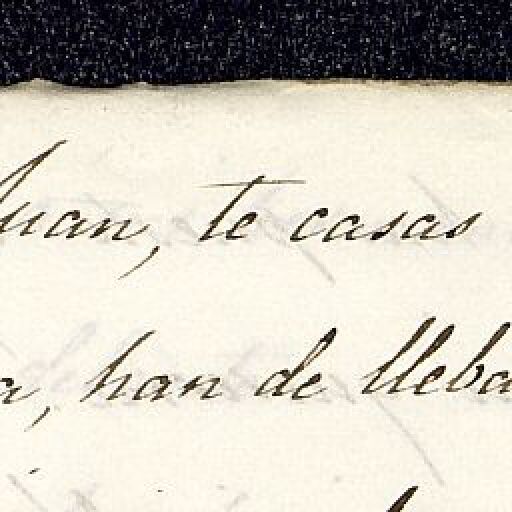 Juan, te casas
a, han de lleba